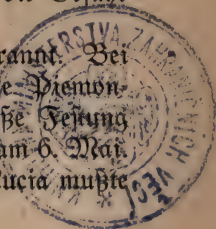 rannt. Bei
e Piemon-
ße Festung
am 6. Mai
lucia mußte
ERSTVA ZAHRANIČNÍCH VĚCÍ